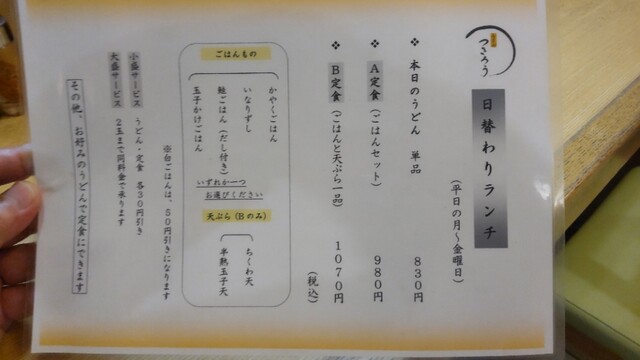 つきろう
日替わりランチ
(平日の月~金曜日)
❖ 本日のうどん 単品 830円
❖ A定食(ごはんセット) 980円
❖ B定食(ごはんと天ぷら一品) 1070円
(税込)
ごはんもの
かやくごはん
いなりずし
鮭ごはん(だし付き)
玉子かけごはん
いずれか一つ
お選びください
天ぷら(Bのみ)
ちくわ天
半熟玉子天
※白ごはんは、50円引きになります
小盛サービス うどん・定食 各30円引き
大盛サービス 2玉まで同料金で承ります
その他、お好みのうどんで定食にできます